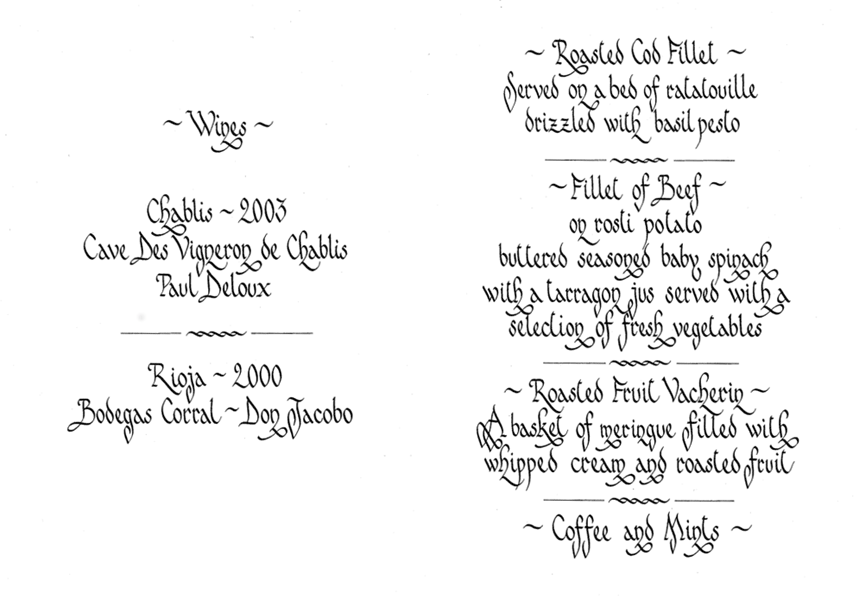 ~ Wines ~
Chablis ~ 2003
Cave Des Vigneron de Chablis
Paul Deloux
Rioja ~ 2000
Bodegas Corral ~ Don Jacobo
~ Roasted Cod Fillet ~
Served on a bed of ratatouille
drizzled with basil pesto
~ Fillet of Beef ~
on rosti potato
buttered seasoned baby spinach
with a tarragon jus served with a
selection of fresh vegetables
~ Roasted Fruit Vacherin ~
A basket of meringue filled with
whipped cream and roasted fruit
~ Coffee and Mints ~